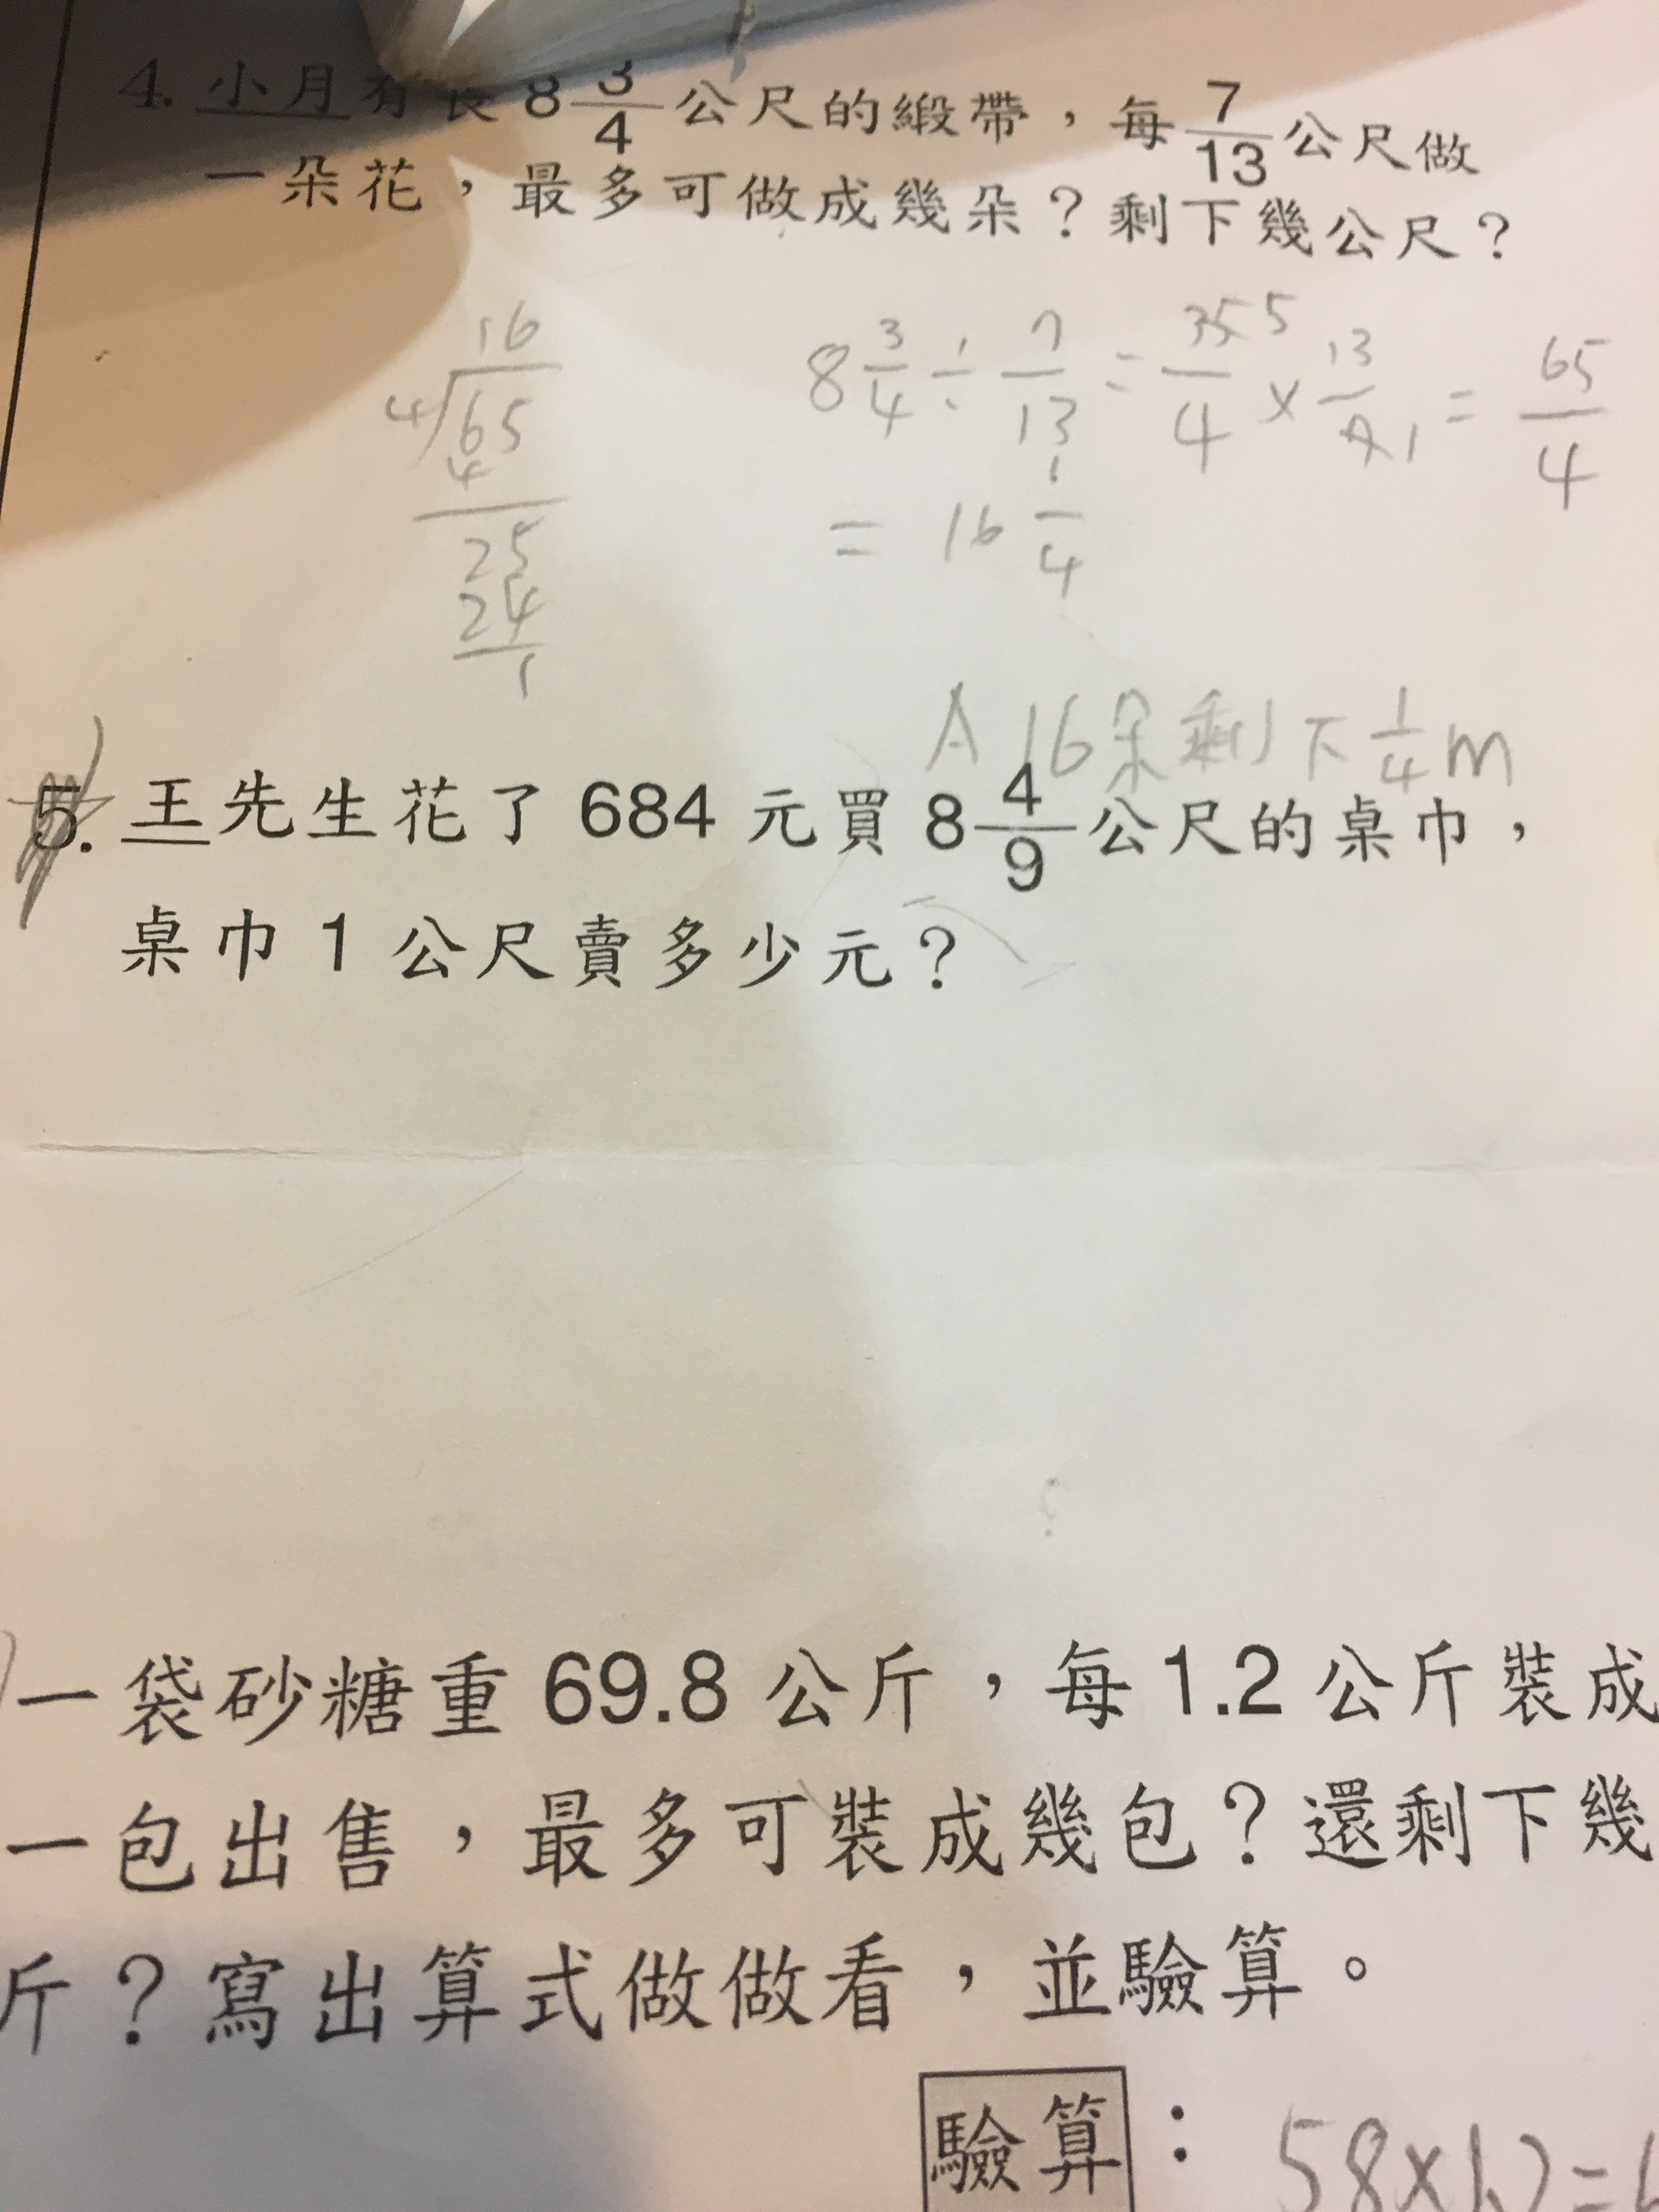 4. 小月有長 8 3/4 公尺的緞帶，每 7/13 公尺做
一朵花，最多可做成幾朵？剩下幾公尺？
16
4√65
4
25
24
1
8 3/4 ÷ 7/13 = 35 5/4 × 13/7 1 = 65/4
= 16 1/4
A 16朵剩下 1/4 m
5. 王先生花了 684 元買 8 4/9 公尺的桌巾，
桌巾 1 公尺賣多少元？
一袋砂糖重 69.8 公斤，每 1.2 公斤裝成
一包出售，最多可裝成幾包？還剩下幾
斤？寫出算式做做看，並驗算。
驗算：58×1.2=6